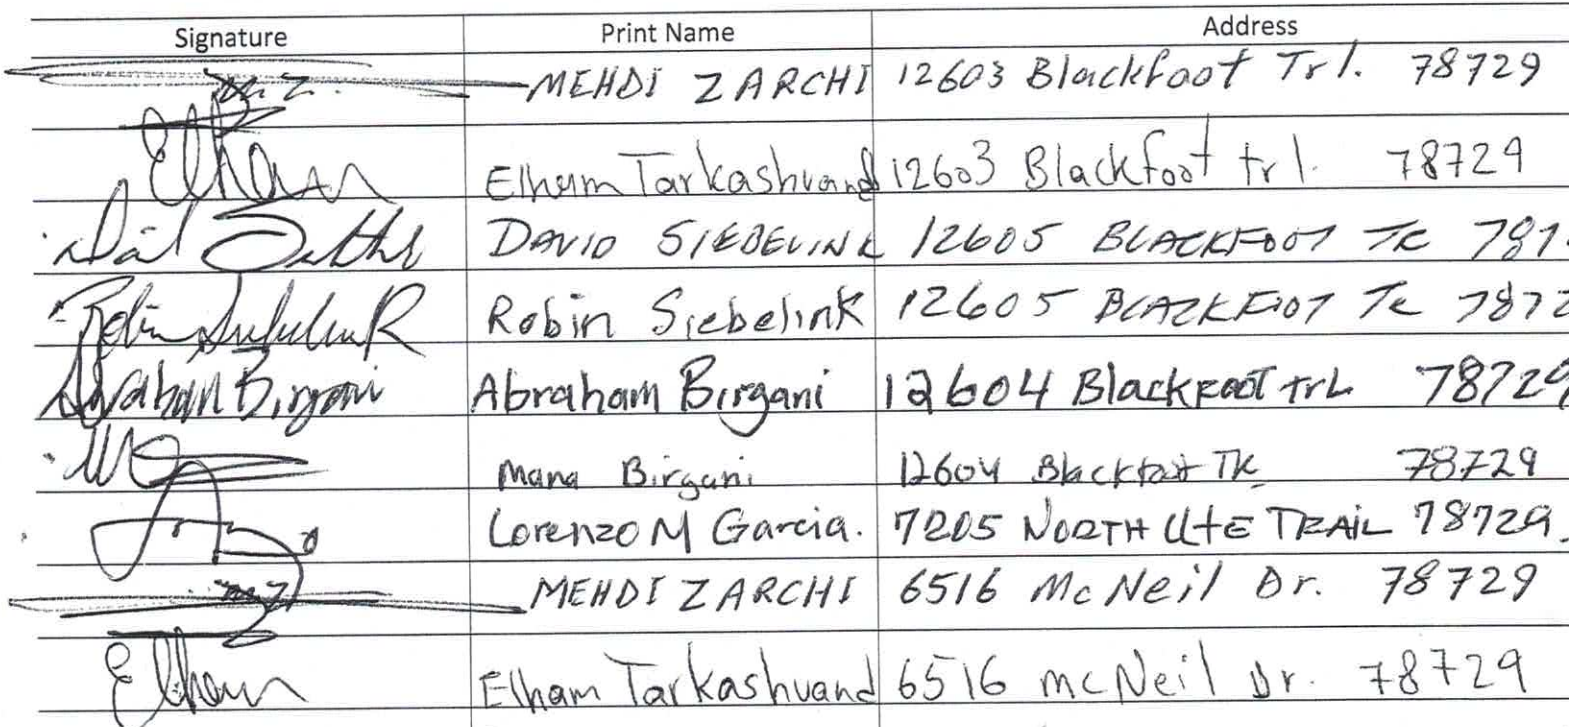 Signature Print Name Address
M.Z. MEHDI ZARCHI 12603 Blackfoot Trl. 78729
Elham Elham Tarkashvand 12603 Blackfoot trl. 78729
DAVID SIEBELINK 12605 BLACKFOOT TR 787
Robin Siebelink 12605 BLACKFOOT TR 7872
Abraham Birgani Abraham Birgani 12604 Blackfoot trl 78729
Mana Birgani 12604 Blackfoot TR 78729
Lorenzo M Garcia. 7205 NORTH UtE TRAiL 78729.
M.Z. MEHDI ZARCHI 6516 McNeil Dr. 78729
Elham Elham Tarkashvand 6516 mcNeil Dr. 78729